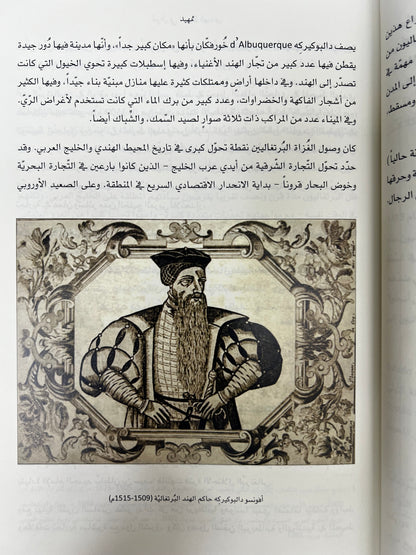 تمهيد
يصف دالبوكيركه d'Albuquerque خُورفكان بأنها «مكان كبير جداً، وأنّها مدينة فيها دُور جيدة
يقطن فيها عدد كبير من تجّار الهند الأغنياء، وفيها إسطبلات كثيرة تحوي الخيول التي كانت
تصدّر إلى الهند. وفي داخلها أراضٍ وممتلكات كثيرة عليها منازل مبنيّة بناء جيّداً، وفيها الكثير
من أشجار الفاكهة والخضراوات، وعدد كبير من برك الماء التي كانت تستخدم لأغراض الرّيّ،
وفي الميناء عدد من المراكب ذات ثلاثة صوارٍ لصيد السّمك، والشّباك أيضاً.
كان وصول الغُزاة البُرتغاليّين نقطة تحوّل كبرى في تاريخ المحيط الهندي والخليج العربي. وقد
حدّد تحوّل التّجارة الشّرقية من أيدي عرب الخليج – الذين كانوا بارعين في التّجارة البحريّة
وخوض البحار قروناً – بداية الانحدار الاقتصادي السريع في المنطقة. وعلى الصعيد الأوروبي
أفونسو دالبوكيركه حاكم الهند البُرتغاليّة (1509-1515م)
اع هذين
اليون من
مهمّة في
إلى المدن
ومسقط.
ة حالياً)
ة وحرفها
الرجال.